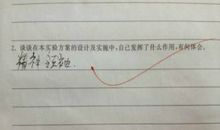 2、谈谈在本实验方案的设计及实施中,自己发挥了什么作用,有何体会。
精神领袖.